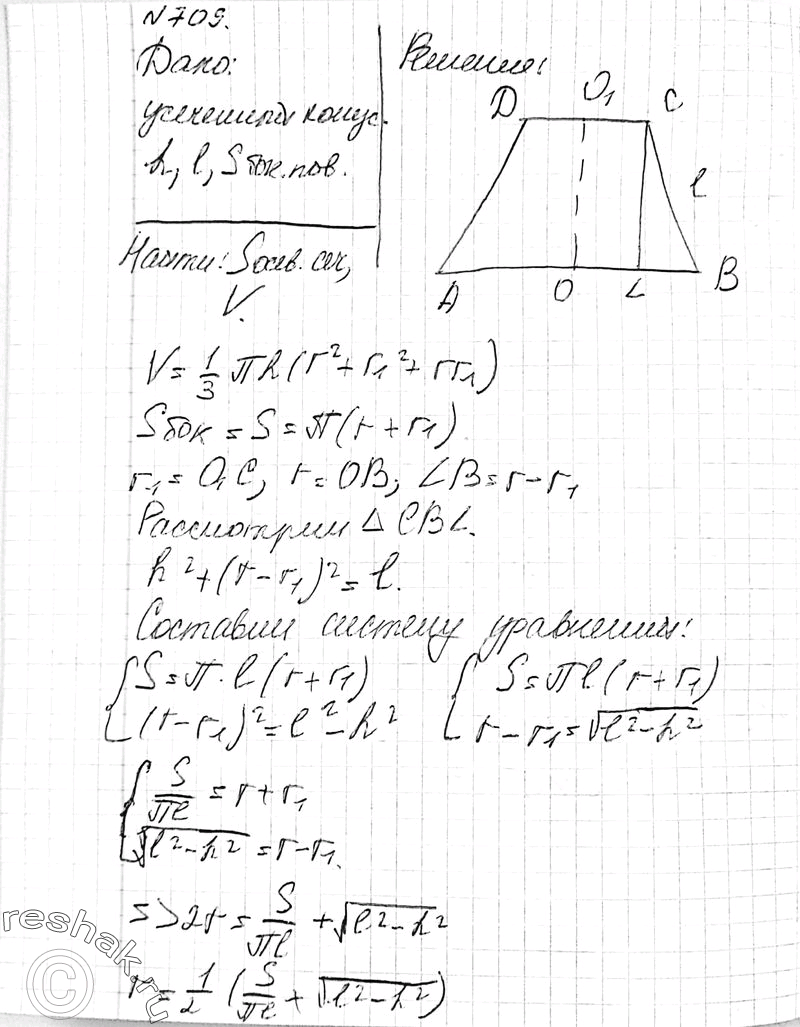 №709.
Дано:
усеченный конус.
h, l, Sбок.пов.
Найти: Sосев. сеч,
V.
Решение:
D O₁ C
l
A O L B
V = 1/3 πh(r² + r₁² + rr₁)
Sбок = S = π(r + r₁)
r₁ = O₁C, r = OB, LB = r - r₁
Рассмотрим △CBL.
h² + (r - r₁)² = l.
Составим систему уравнений:
{ S = π·l(r + r₁) { S = πl(r + r₁)
(r - r₁)² = l² - h² r - r₁ = √(l² - h²)
{ S/πl = r + r₁
√(l² - h²) = r - r₁.
=> 2r = S/πl + √(l² - h²)
r = 1/2 (S/πl + √(l² - h²))
reshak.ru
©